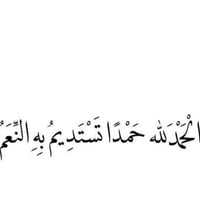 الْحَمْدَلله حَمْدًا تَسْتَدِيمُ بِهِ النِّعَمُ